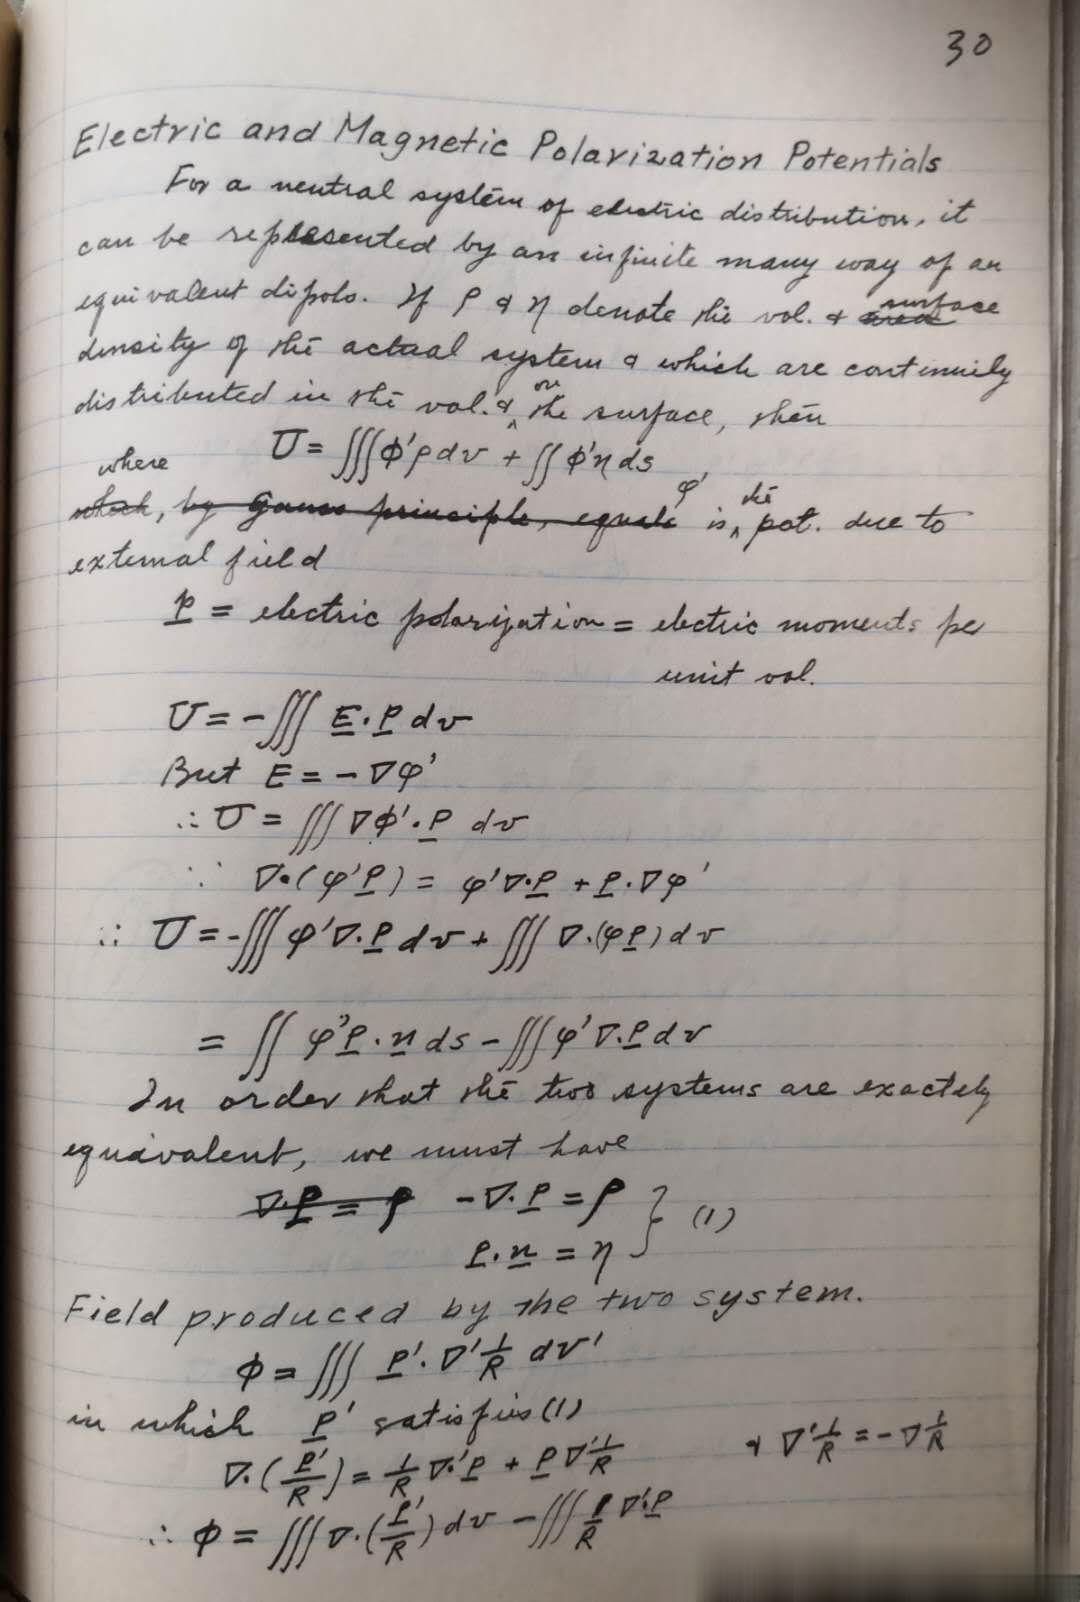 30
Electric and Magnetic Polarization Potentials
For a neutral system of electric distribution, it
can be represented by an infinite many way of an
equivalent dipols. If ρ & η denote the vol. & area surface
density of the actual system & which are continuily
distributed in the vol. & on the surface, then
U = ∭ φ'ρ dv + ∬ φ'η ds
where
which, by Gauss principle, equals φ' is, the pot. due to
external field
p = electric polarization = electric moments per
unit vol.
U = -∭ E·P dv
But E = -∇φ'
∴ U = ∭ ∇φ'·P dv
∵ ∇·(φ'P) = φ'∇·P + P·∇φ'
∴ U = -∭ φ'∇·P dv + ∭ ∇·(φP) dv
= ∬ φ'P·n ds - ∭ φ'∇·P dv
In order that the two systems are exactely
equivalent, we must have
∇·P = ρ -∇·P = ρ
P·n = η } (1)
Field produced by the two system.
φ = ∭ P'·∇' 1/R dv'
in which P' satisfies (1)
∇·(P'/R) = 1/R ∇·'P + P ∇' 1/R & ∇' 1/R = -∇ 1/R
∴ φ = ∭ ∇·(P'/R) dv - ∭ 1/R ∇'·P